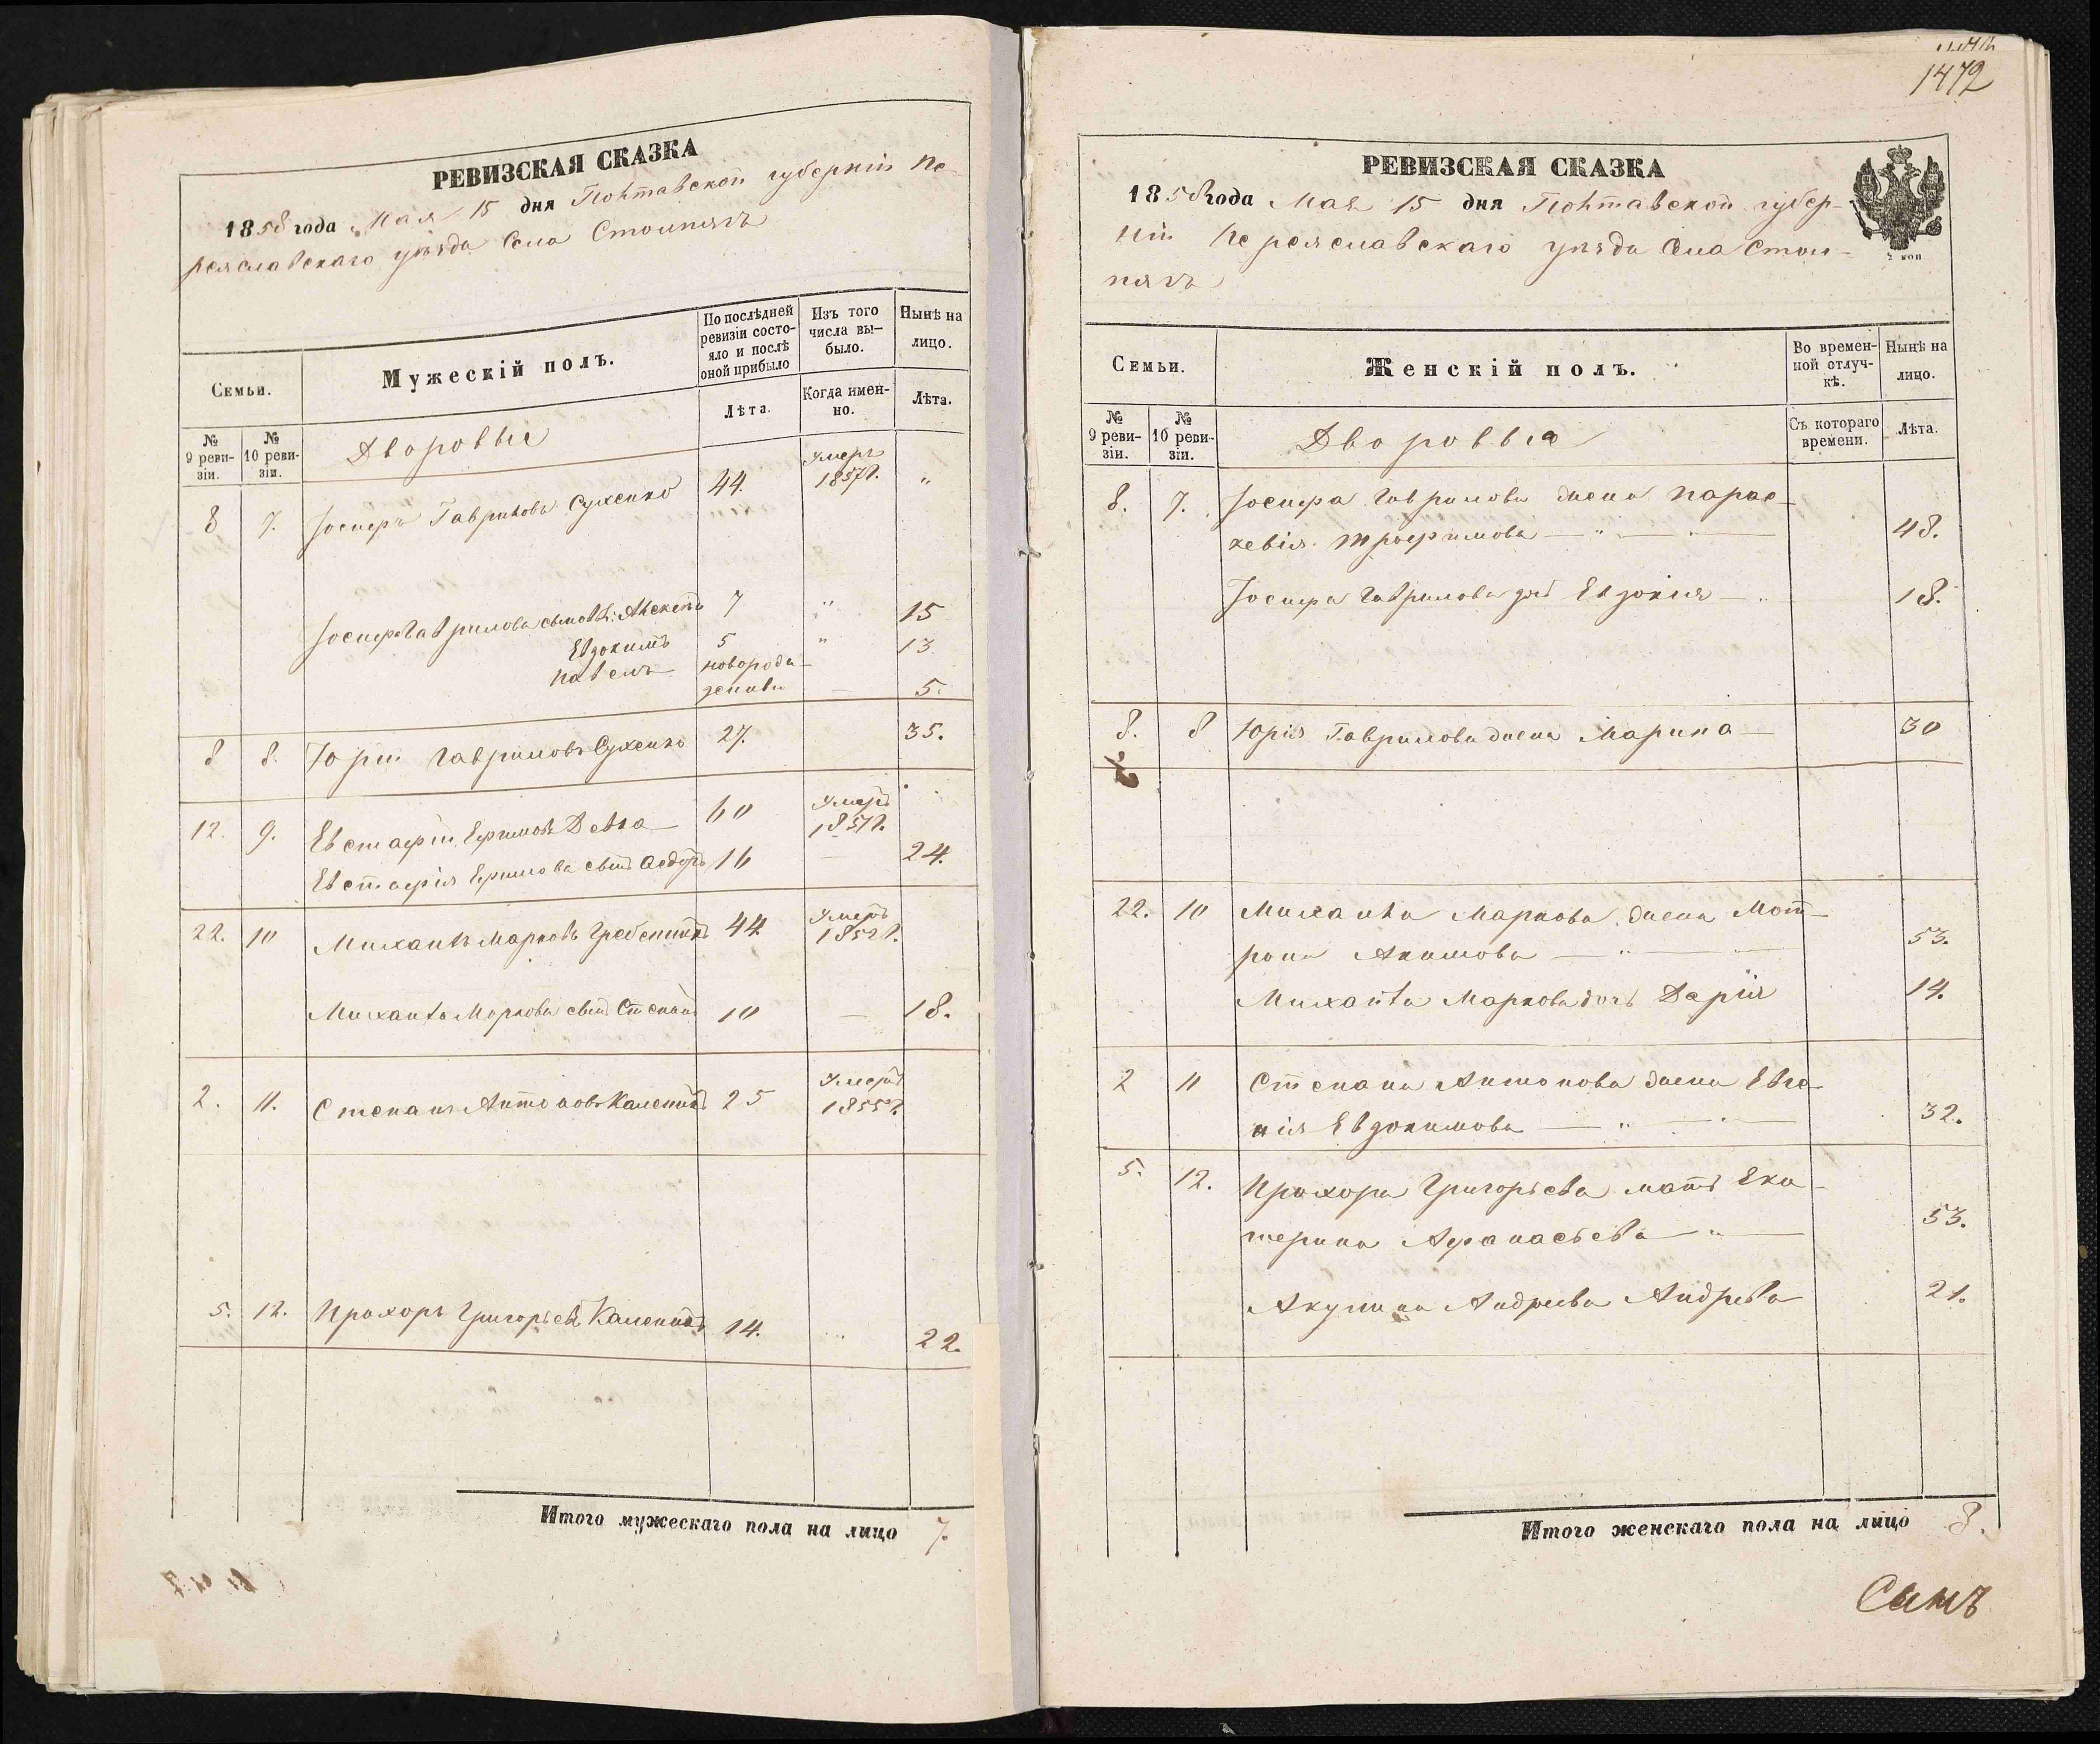 РЕВИЗСКАЯ СКАЗКА
1858 года Мая 15 дня Полтавской губерніи Пе-
реяславскаго уѣзда Села Столпяхъ
Семьи.
Мужескій полъ.
По послѣдней ревизіи состо-
яло и послѣ оной прибыло
Изъ того числа вы-
было.
Нынѣ на лицо.
№ 9 реви-
зіи.
№ 10 реви-
зіи.
Лѣта.
Когда имен-
но.
Лѣта.
Дворовые
8 7. Іосифъ Гавриловъ Сухенко 44. умеръ 1857г. "
Іосифа Гаврилова сыновья: Алексѣй 7 " 15
Евдокимъ 5 " 13
Павелъ новорож-
денный — 5.
8 8. Юрій Гавриловъ Сухенко 27. 35.
12. 9. Евстафій Ефимовъ 60 умеръ 1857г.
Евстафія Ефимова сынъ Федоръ 16 — 24.
22. 10 Михаилъ Марковъ Гребенникъ 44. умеръ
Михаила Маркова сынъ Степанъ 10 — 18.
2. 11. Степанъ Антоновъ Каленикъ 25 умеръ 1855г.
5. 12. Прохоръ Григорьевъ Каленикъ 14. 22.
Итого мужескаго пола на лицо 7.
1472
РЕВИЗСКАЯ СКАЗКА
1858 года Мая 15 дня Полтавской губер-
ніи Переяславскаго уѣзда Села Стол-
пяхъ
коп
Семьи.
Женскій полъ.
Во времен-
ной отлуч-
кѣ.
Нынѣ на лицо.
№ 9 реви-
зіи.
№ 10 реви-
зіи.
Съ котораго времени.
Лѣта.
Дворовыя
8. 7. Іосифа Гаврилова жена Парас-
кевія Трофимова — " — 48.
Іосифа Гаврилова дочь Евдокія — " 18.
8. 8 Юрія Гаврилова жена Марина — 30
22. 10 Михаила Маркова жена Мот-
рона Акимова — " — 53.
Михаила Маркова дочь Дарія 14.
2 11 Степана Антонова жена Евге-
нія Евдокимова — " — 32.
5. 12. Прохора Григорьева мать Ека-
терина Афанасьева — " — 53.
Акулина Андреева Андреева 21.
Итого женскаго пола на лицо 8.
Сынъ